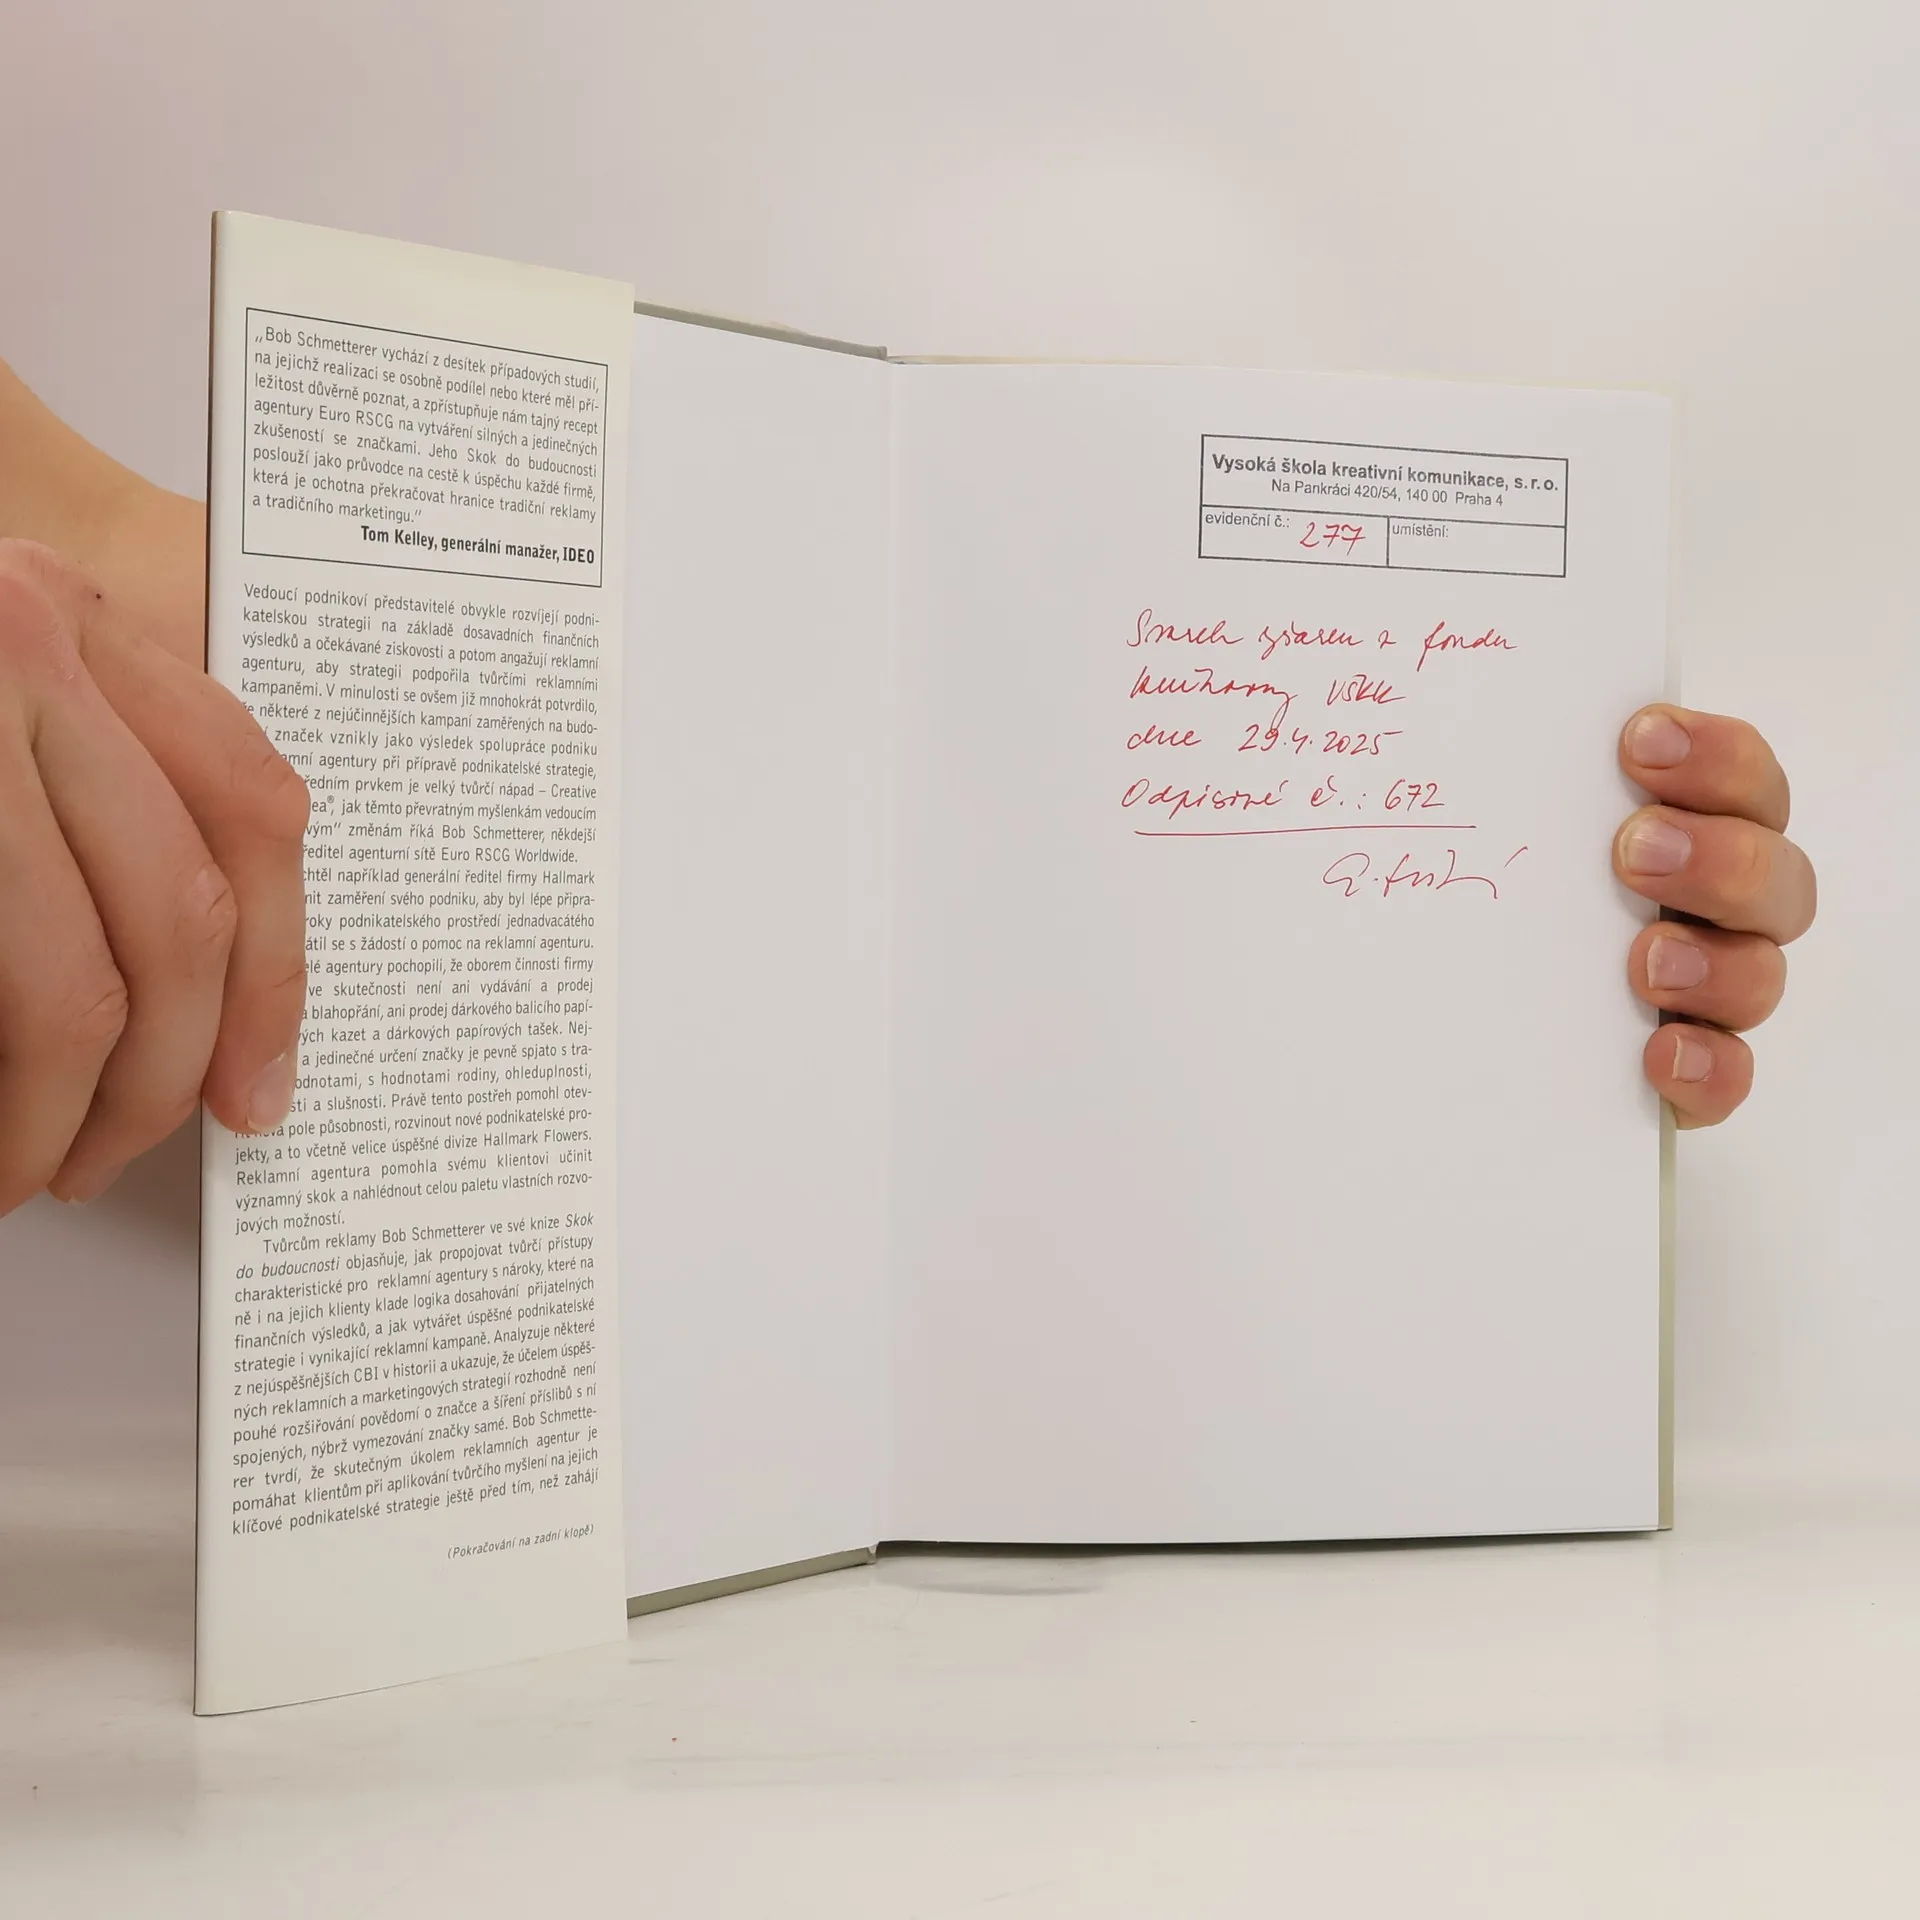 „Bob Schmetterer vychází z desítek případových studií,
na jejichž realizaci se osobně podílel nebo které měl pří-
ležitost důvěrně poznat, a zpřístupňuje nám tajný recept
agentury Euro RSCG na vytváření silných a jedinečných
zkušeností se značkami. Jeho Skok do budoucnosti
poslouží jako průvodce na cestě k úspěchu každé firmě,
která je ochotna překračovat hranice tradiční reklamy
a tradičního marketingu.“
Tom Kelley, generální manažer, IDEO
Vedoucí podnikoví představitelé obvykle rozvíjejí podni-
katelskou strategii na základě dosavadních finančních
výsledků a očekávané ziskovosti a potom angažují reklamní
agenturu, aby strategii podpořila tvůrčími reklamními
kampaněmi. V minulosti se ovšem již mnohokrát potvrdilo,
že některé z nejúčinnějších kampaní zaměřených na budo-
značek vznikly jako výsledek spolupráce podniku
amní agentury při přípravě podnikatelské strategie,
ředním prvkem je velký tvůrčí nápad – Creative
ea®, jak těmto převratným myšlenkám vedoucím
vým“ změnám říká Bob Schmetterer, někdejší
ředitel agenturní sítě Euro RSCG Worldwide.
chtěl například generální ředitel firmy Hallmark
nit zaměření svého podniku, aby byl lépe připra-
roky podnikatelského prostředí jednadvacátého
átil se s žádostí o pomoc na reklamní agenturu.
elé agentury pochopili, že oborem činnosti firmy
ve skutečnosti není ani vydávání a prodej
a blahopřání, ani prodej dárkového balicího papí-
ých kazet a dárkových papírových tašek. Nej-
a jedinečné určení značky je pevně spjato s tra-
odnotami, s hodnotami rodiny, ohleduplnosti,
sti a slušnosti. Právě tento postřeh pomohl otev-
pole působnosti, rozvinout nové podnikatelské pro-
jekty, a to včetně velice úspěšné divize Hallmark Flowers.
Reklamní agentura pomohla svému klientovi učinit
významný skok a nahlédnout celou paletu vlastních rozvo-
jových možností.
Tvůrcům reklamy Bob Schmetterer ve své knize Skok
do budoucnosti objasňuje, jak propojovat tvůrčí přístupy
charakteristické pro reklamní agentury s nároky, které na
ně i na jejich klienty klade logika dosahování přijatelných
finančních výsledků, a jak vytvářet úspěšné podnikatelské
strategie i vynikající reklamní kampaně. Analyzuje některé
z nejúspěšnějších CBI v historii a ukazuje, že účelem úspěš-
ných reklamních a marketingových strategií rozhodně není
pouhé rozšiřování povědomí o značce a šíření příslibů s ní
spojených, nýbrž vymezování značky samé. Bob Schmette-
rer tvrdí, že skutečným úkolem reklamních agentur je
pomáhat klientům při aplikování tvůrčího myšlení na jejich
klíčové podnikatelské strategie ještě před tím, než zahájí
(Pokračování na zadní klopě)
Vysoká škola kreativní komunikace, s.r.o.
Na Pankráci 420/54, 140 00 Praha 4
evidenční č.: 277
umístění:
Svazek vyřazen z fondu
knihovny VŠKK
dne 29.4.2025
Odpisové č.: 672